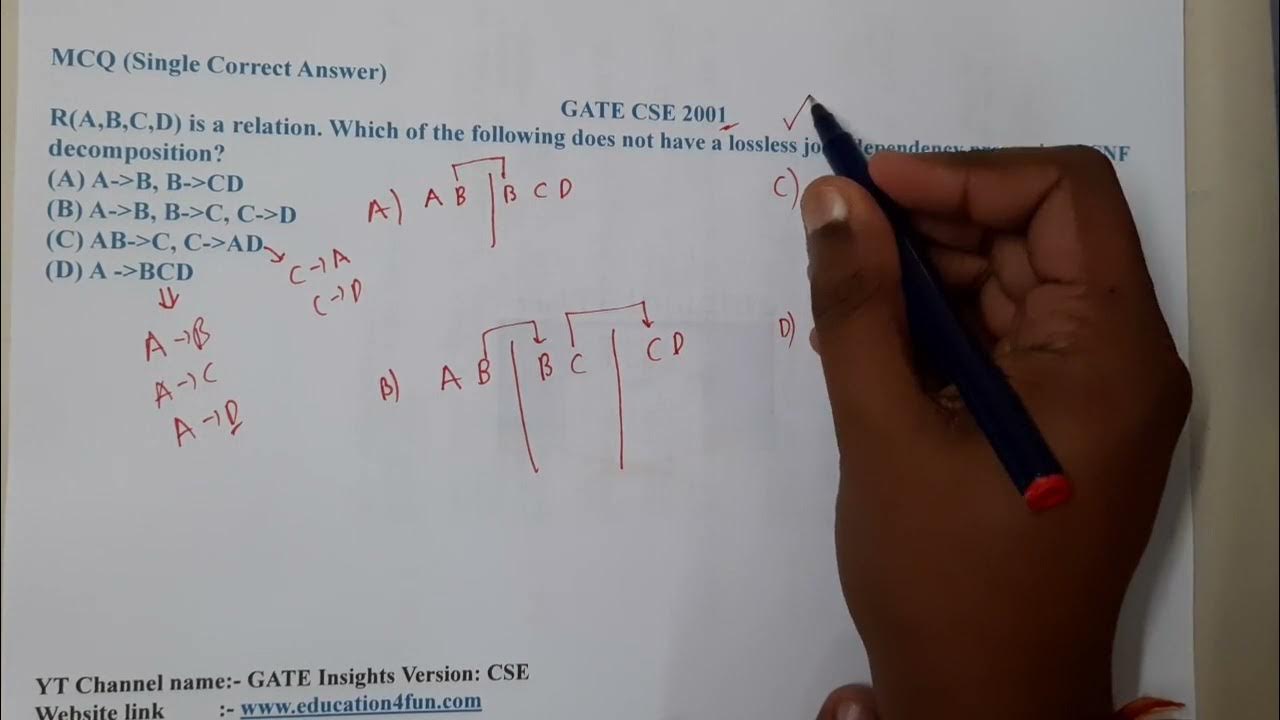 MCQ (Single Correct Answer)
GATE CSE 2001
R(A,B,C,D) is a relation. Which of the following does not have a lossless
decomposition?
(A) A->B, B->CD
(B) A->B, B->C, C->D
(C) AB->C, C->AD
(D) A ->BCD
C→A
C→D
A→B
A→C
A→D
A) A B B C D
B) A B B C C D
C)
D)
YT Channel name:- GATE Insights Version: CSE
Website link :- www.education4fun.com